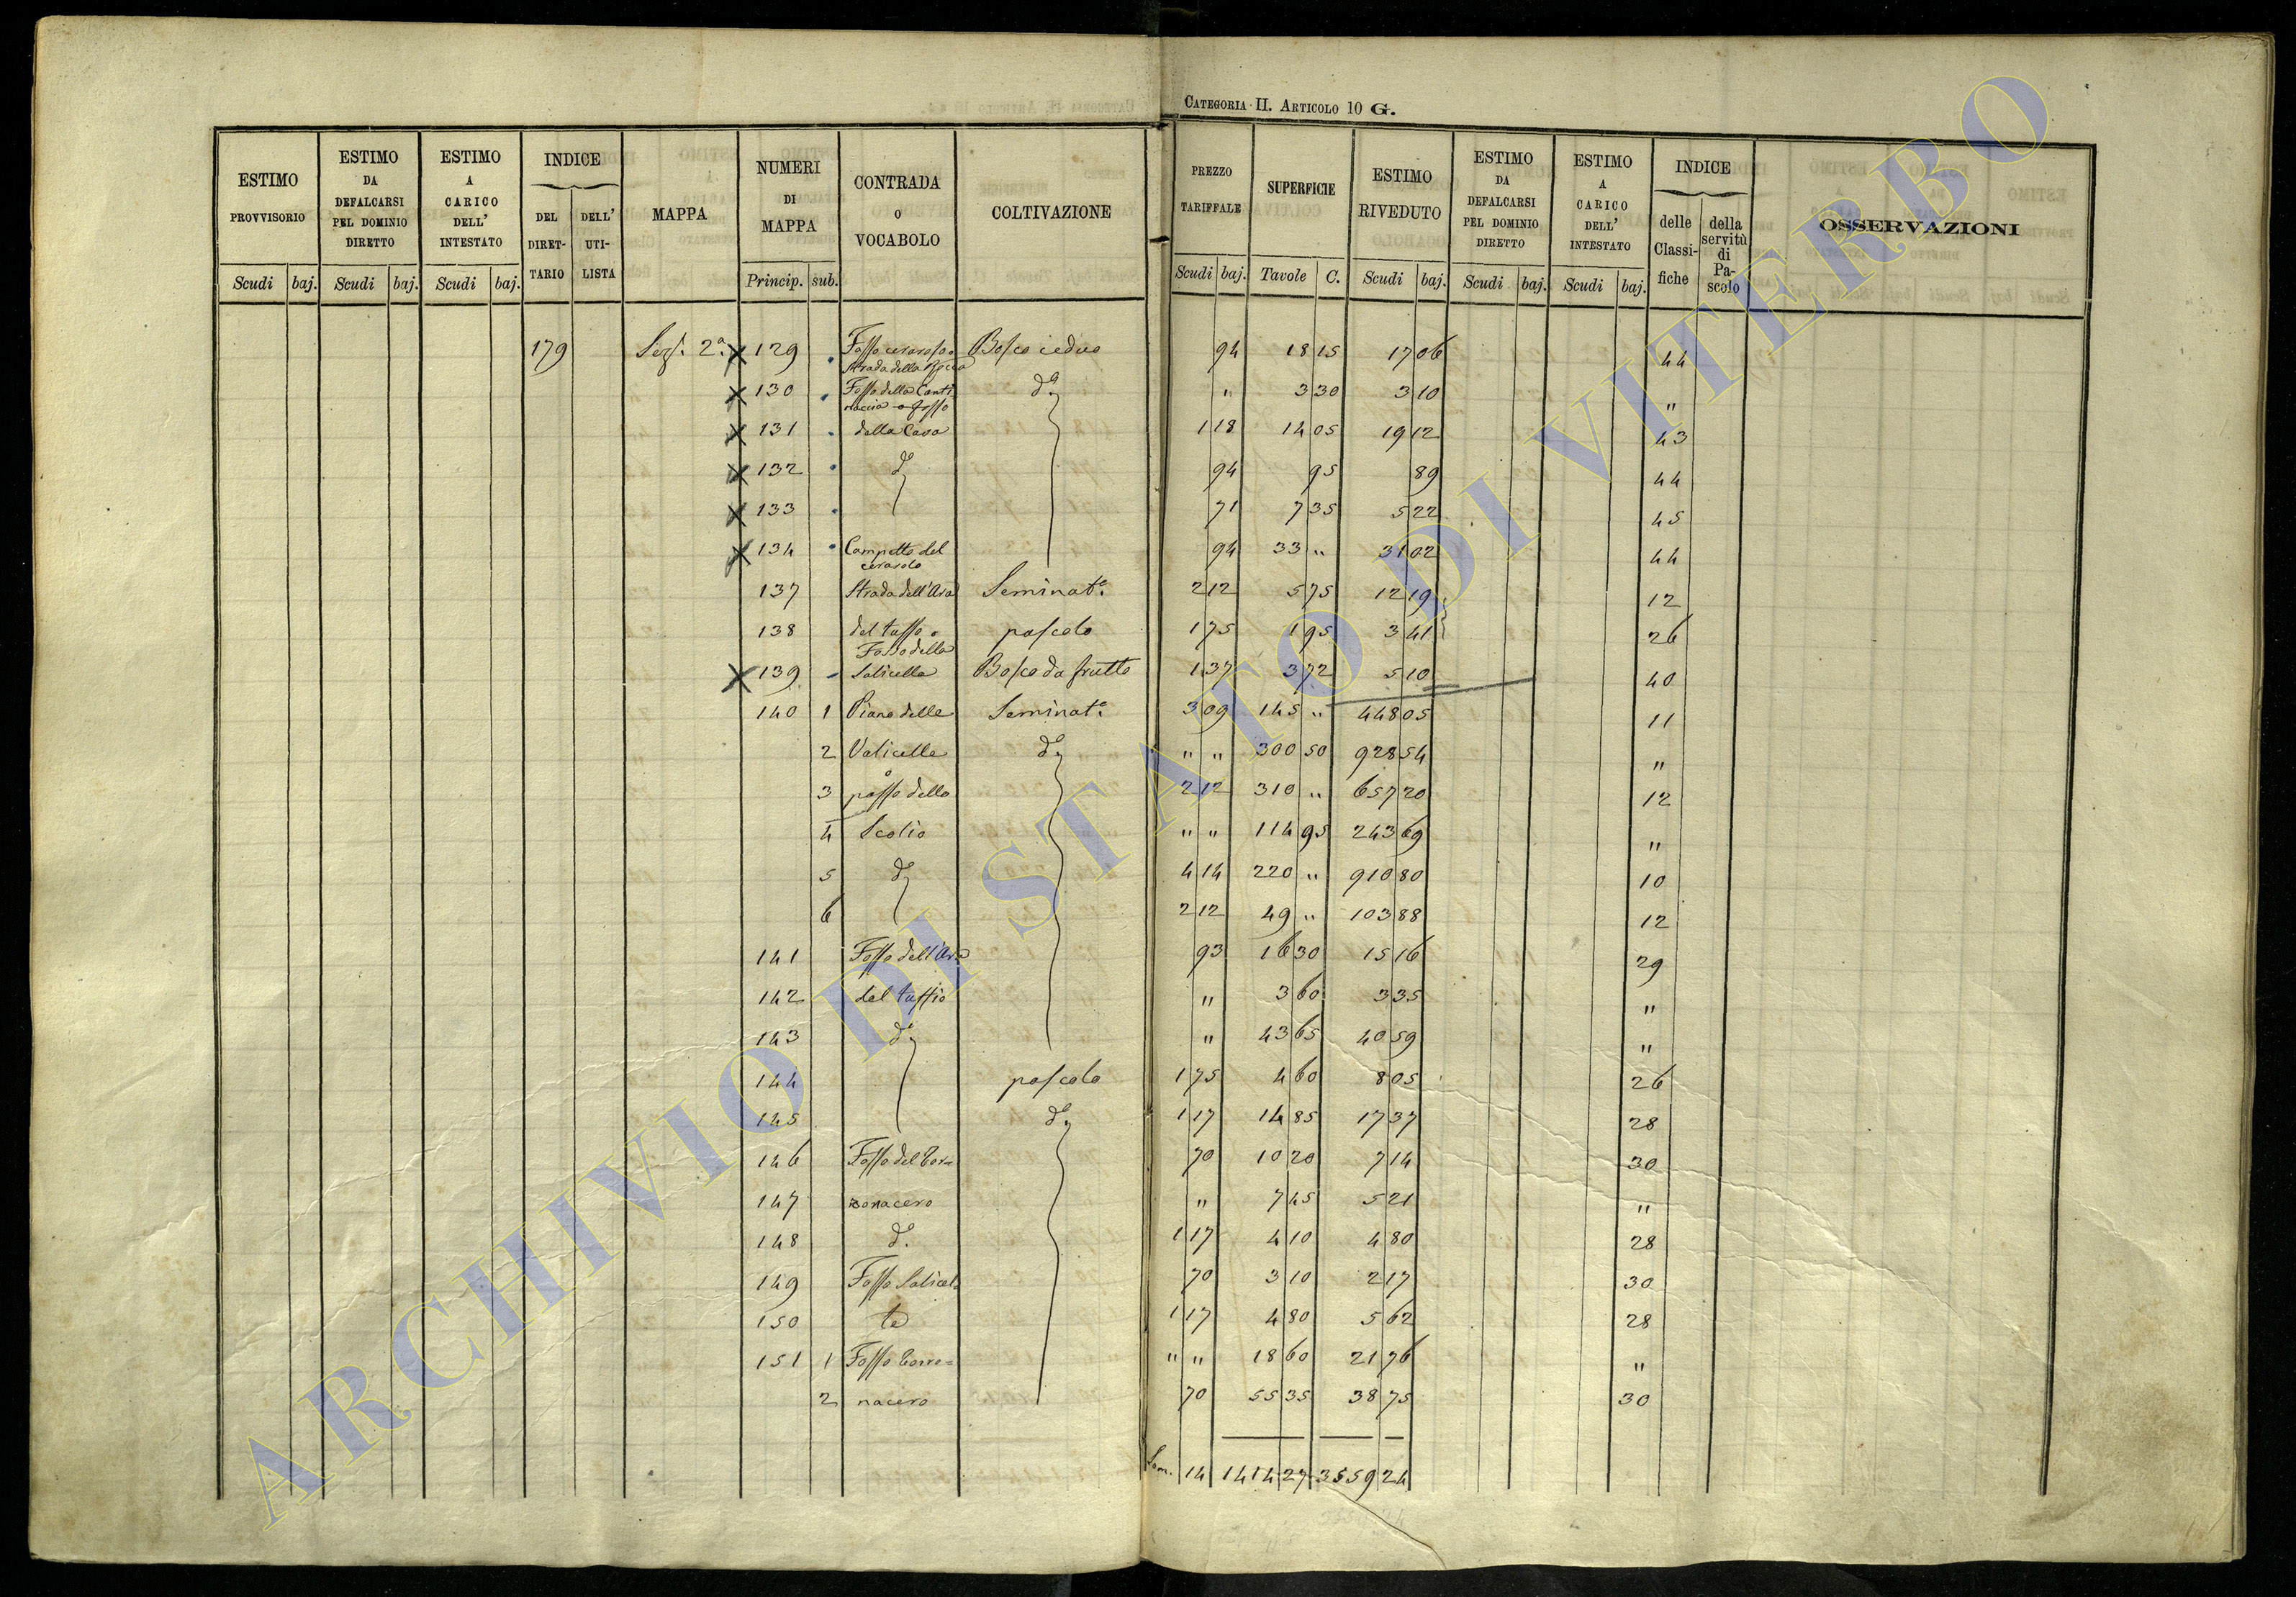 CATEGORIA II. ARTICOLO 10 G.
ESTIMO PROVVISORIO Scudi baj. ESTIMO DA DEFALCARSI PEL DOMINIO DIRETTO Scudi baj. ESTIMO A CARICO DELL' INTESTATO Scudi baj. INDICE DEL DIRET-TARIO DELL' UTI-LISTA MAPPA NUMERI DI MAPPA Princip. sub. CONTRADA O VOCABOLO COLTIVAZIONE PREZZO TARIFFALE Scudi baj. SUPERFICIE Tavole C. ESTIMO RIVEDUTO Scudi baj. ESTIMO DA DEFALCARSI PEL DOMINIO DIRETTO Scudi baj. ESTIMO A CARICO DELL' INTESTATO Scudi baj. INDICE delle Classi-fiche della servitù di Pa-scolo OSSERVAZIONI
179 Sez. 2ª x 129 Fosso cerasolo o Bosco ceduo 94 18 15 17 06 44
Strada della Rocca
x 130 Fosso della Canti dº " 3 30 3 10 "
naccia o fosso
x 131 della Cava 1 18 14 05 19 12 43
x 132 dº 94 95 89 44
x 133 71 7 35 5 22 45
x 134 Campetto del 94 33 " 31 02 44
cerasolo
137 Strada dell'Ara Seminatº 2 12 5 75 12 19 12
138 del tasso o pascolo 1 75 1 95 3 41 26
Fosso della
x 139 Salicella Bosco da frutto 1 37 3 72 5 10 40
140 1 Piano delle Seminatº 3 09 145 " 448 05 11
2 Valicelle dº " " 300 50 928 54 "
o
3 passo dello 2 12 310 " 657 20 12
4 Scolio " " 114 95 243 69 "
5 dº 4 14 220 " 910 80 10
6 2 12 49 " 103 88 12
141 Fosso dell'Ara 93 16 30 15 16 29
142 del tassio " 3 60 3 35 "
143 dº " 43 65 40 59 "
144 pascolo 1 75 4 60 8 05 26
145 dº 1 17 14 85 17 37 28
146 Fosso del Tor= 70 10 20 7 14 30
147 " 7 45 5 21 "
148 dº 1 17 4 10 4 80 28
149 Fosso Salicel= 70 3 10 2 17 30
150 te 1 17 4 80 5 62 28
151 1 Fosso Torro= " " 18 60 21 76 "
2 nacero 70 55 35 38 75 30
Som. 14 1414 27 3559 24
ARCHIVIO DI STATO DI VITERBO